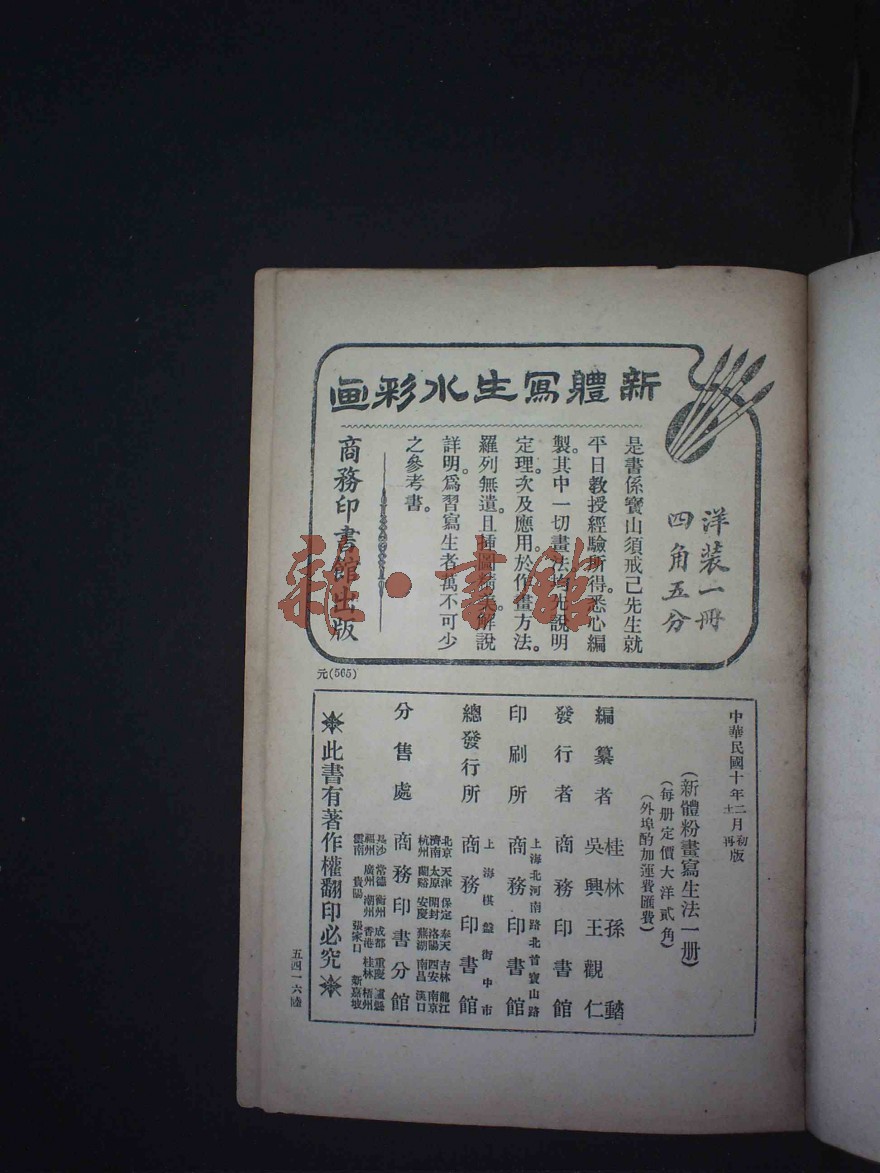 新體寫生水彩画
洋裝一冊
四角五分
是書係寶山須戒己先生就
平日教授經驗所得。悉心編
製。其中一切畫法均先說明
定理。次及應用於作畫方法。
羅列無遺。且插圖精美。解說
詳明。爲習寫生者萬不可少
之參考書。
商務印書館出版
元(565)
中華民國十年二月初版
十二 再
(新體粉畫寫生法一册)
(每册定價大洋貳角)
(外埠酌加運費匯費)
編纂者 桂林孫
吳興王觀仁
發行者 商務印書館
上海北河南路北首寶山路
印刷所 商務印書館
上海棋盤街中市
總發行所 商務印書館
北京 天津 保定 奉天 吉林 龍江
濟南 太原 開封 洛陽 西安 南京
杭州 蘭谿 安慶 蕪湖 南昌 漢口
分售處 商務印書分館
長沙 常德 衡州 成都 重慶 瀘縣
福州 廣州 潮州 香港 桂林 梧州
雲南 貴陽 張家口 新嘉坡
此書有著作權翻印必究
五四一六陸
雜·書館